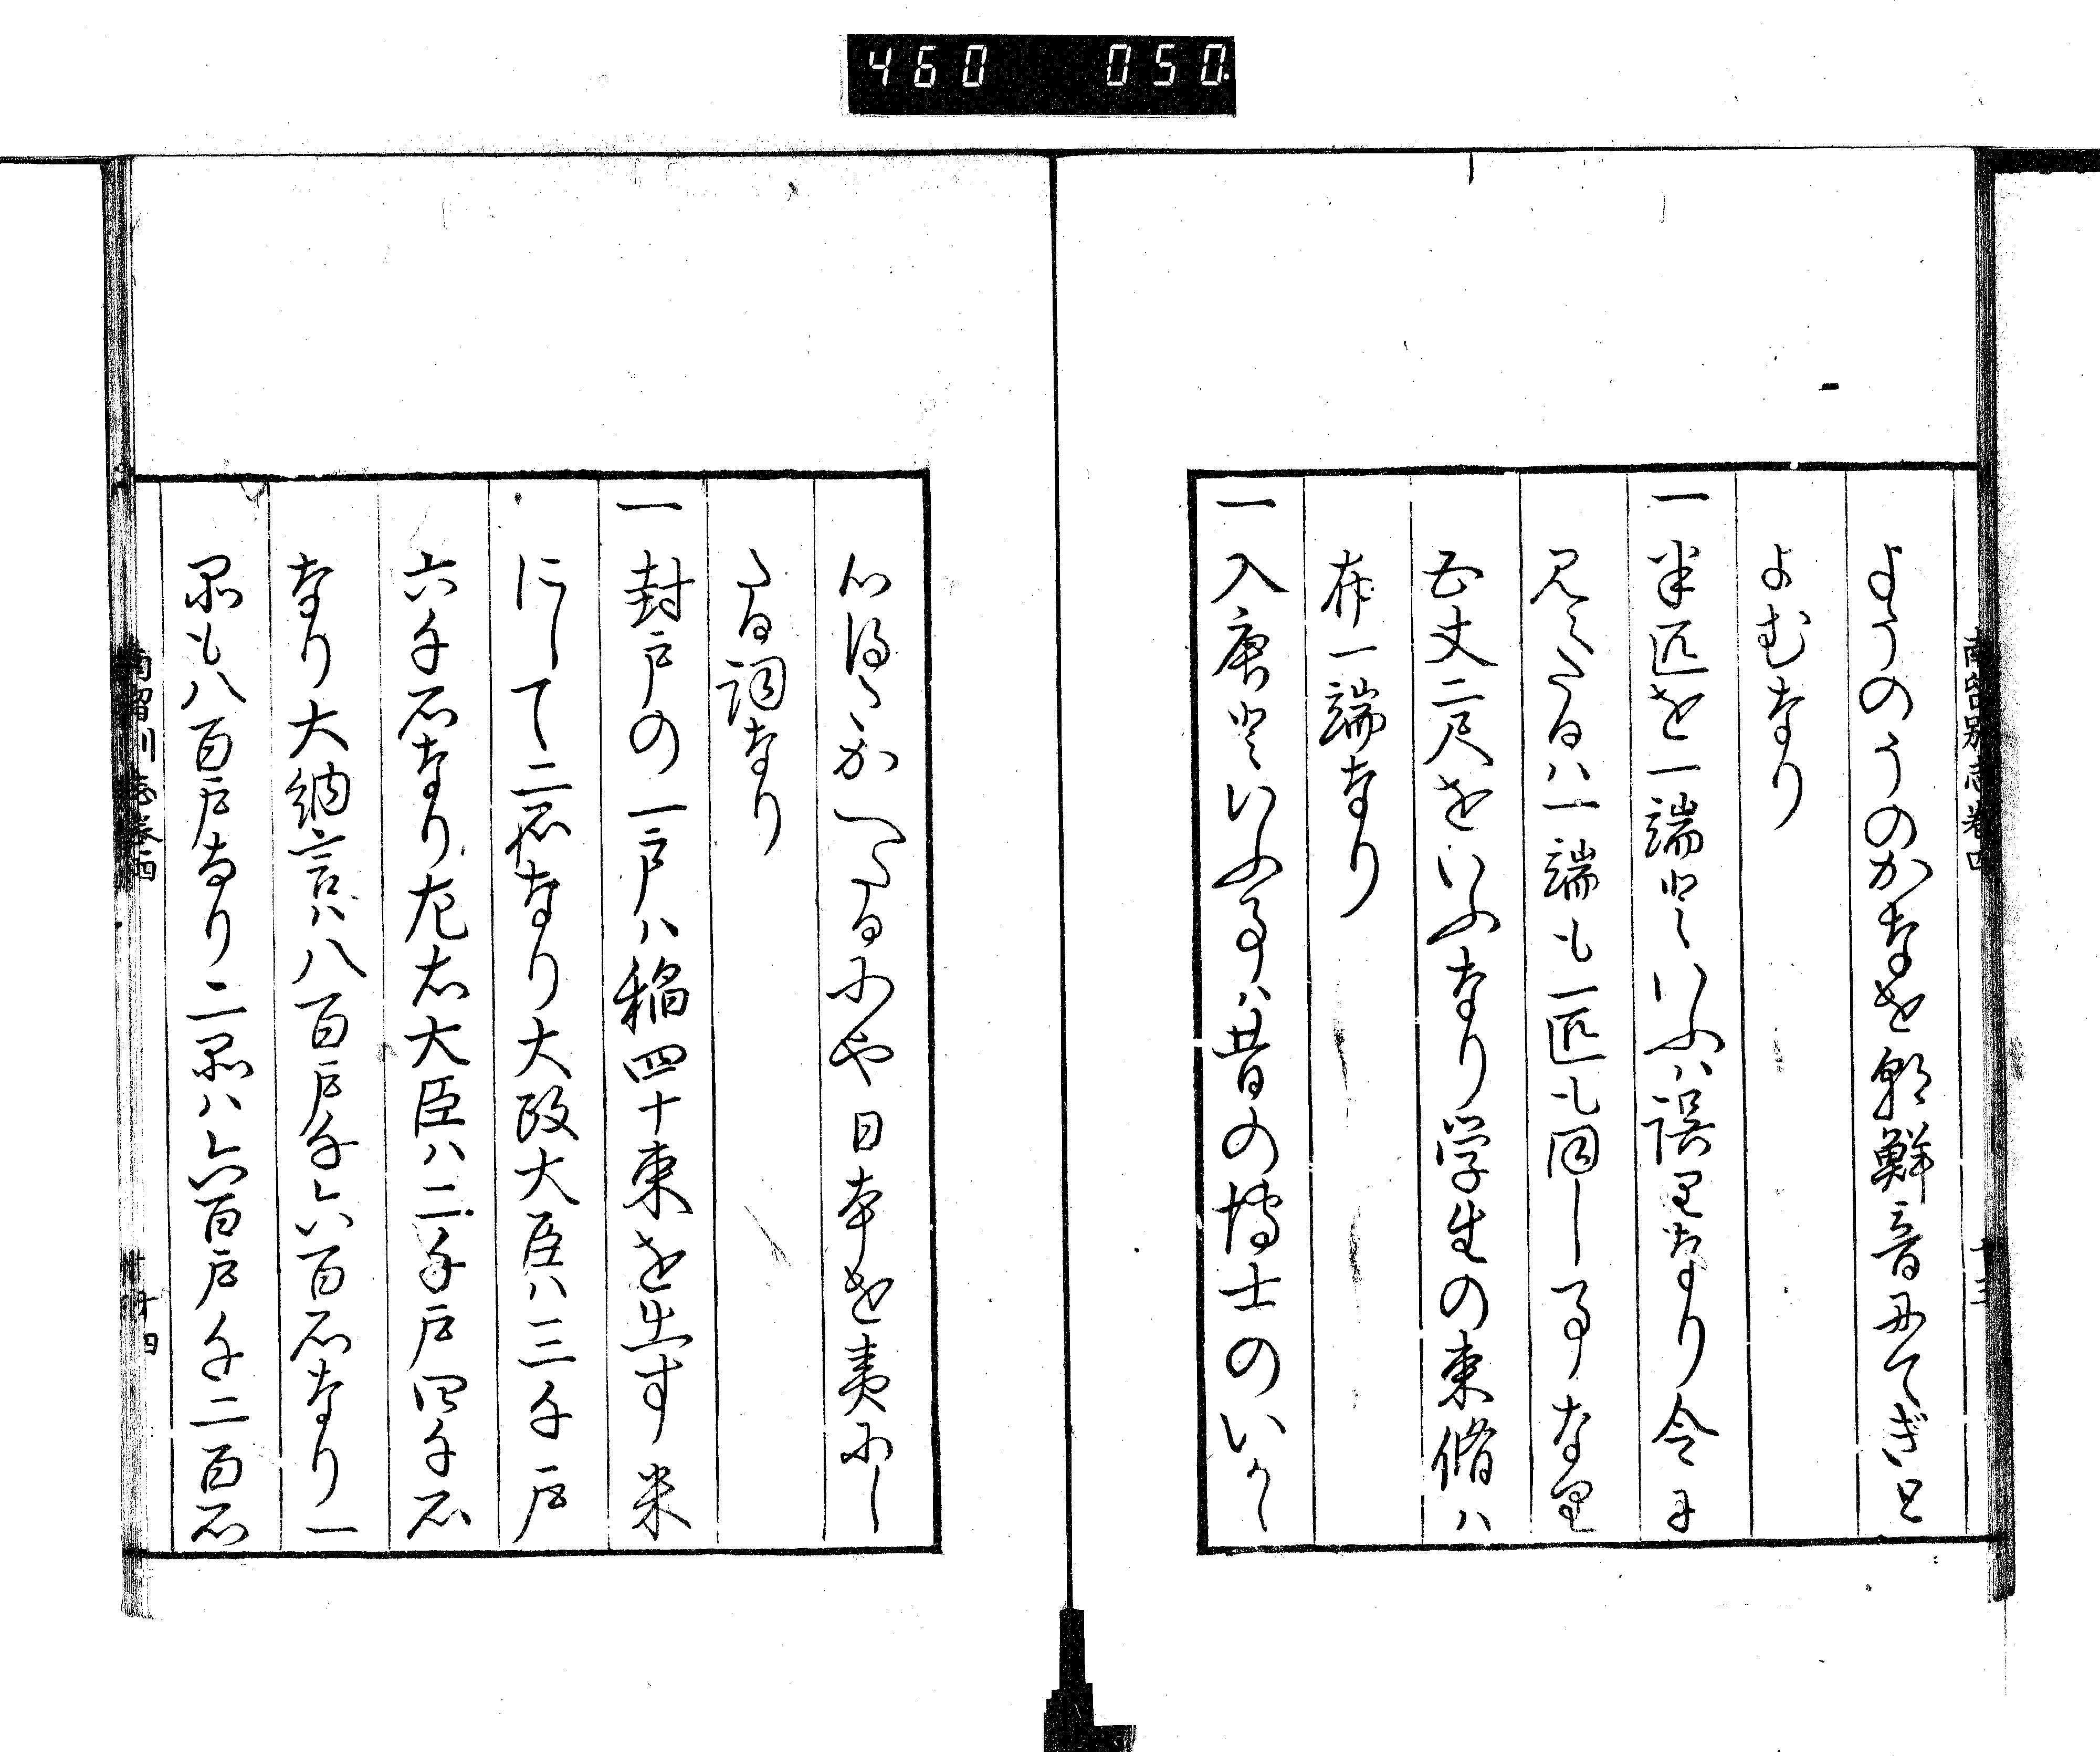 460 050
南留別志巻四
十三
ようのうのかなを朝鮮音にてぎと
よむなり
一半匹を一端といふハ誤りなり令に
見えたるハ一端も一匹も同しことなり
五丈二尺をいふなり学生の束脩ハ
布一端なり
一入唐といふ事ハ昔の博士のいかく
心得かへたるにや日本を夷にし
たる詞なり
一封戸の一戸ハ稲四十束を出す米
にして二石なり大政大臣ハ三千戸
六千石なり左右大臣ハ二千戸四千石
なり大納言ハ八百戸千六百石なり一
品も八百戸なり二品ハ六百戸千二百石
南留別志巻四
十四